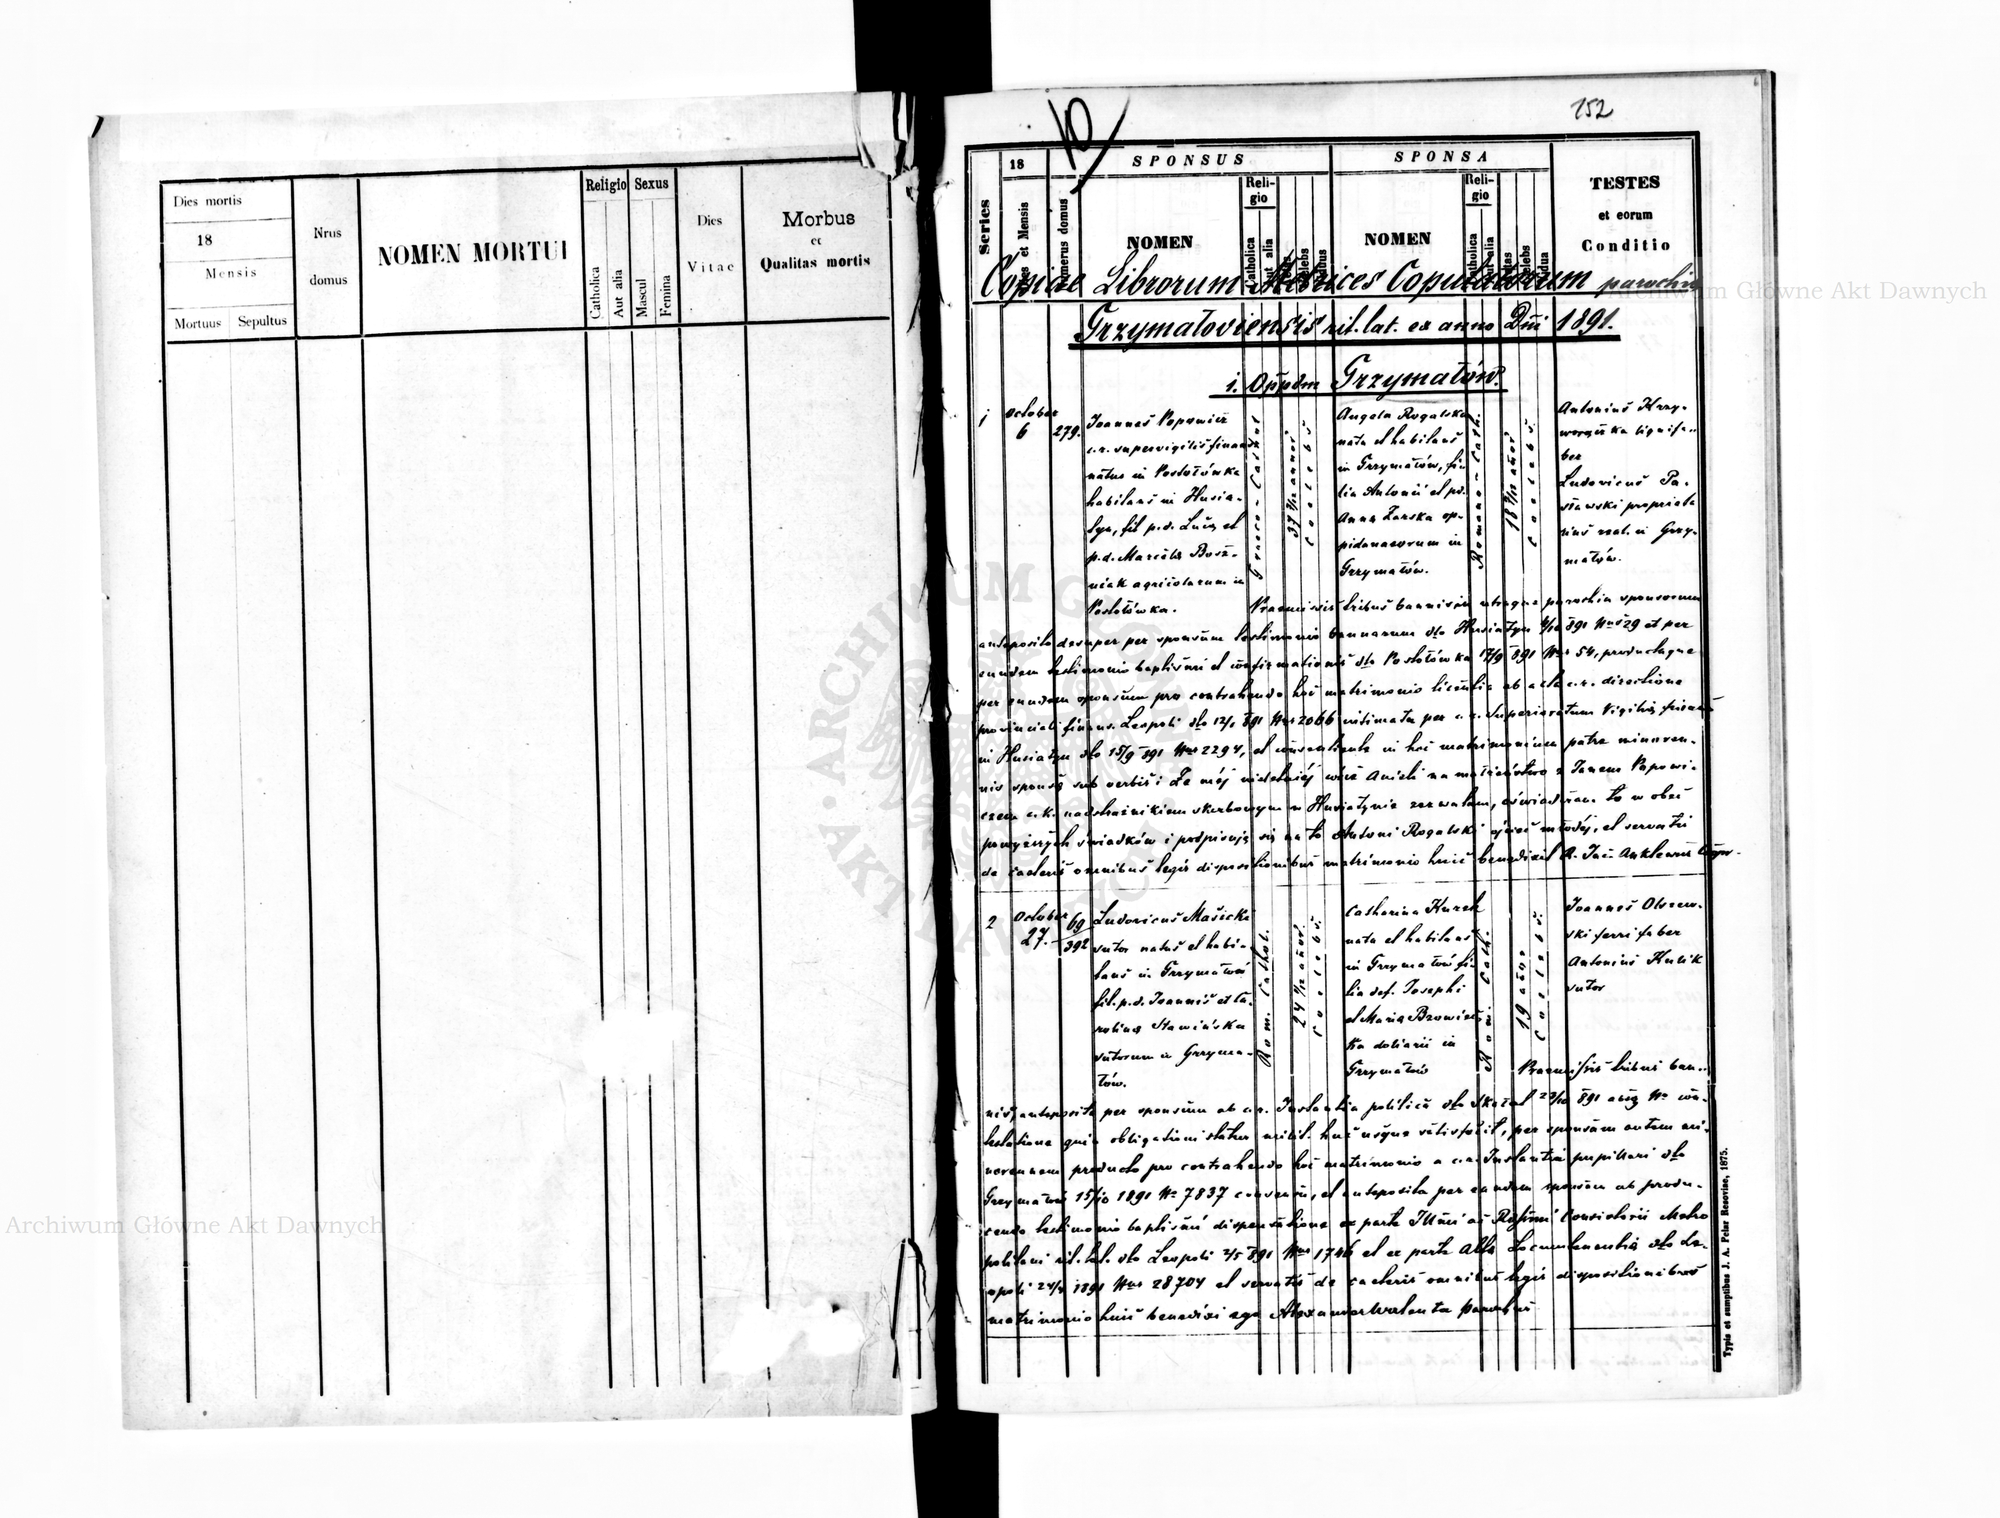 Dies mortis
18
Mensis
Mortuus
Sepultus
Nrus
domus
NOMEN MORTUI
Religio
Catholica
Aut alia
Sexus
Mascul
Femina
Dies
Vitae
Morbus
et
Qualitas mortis
Archiwum Główne Akt Dawnych
152
Series
18
Dies et Mensis
Numerus domus
SPONSUS
NOMEN
Reli-
gio
Catholica
Aut alia
SPONSA
NOMEN
Reli-
gio
Catholica
Aut alia
TESTES
et eorum
Conditio
Copiae Librorum Metrices Copulatorum parochiae
Grzymałoviensis rit. lat. ex anno Dni 1891.
1. Oppdm Grzymałów.
1
October
6
279.
Joannes Popowicz
c.r. supervigilis finan.
natus in Postołówka
habitans in Husia-
tyn, fil p.d. Lucae et
p.d.
niak agricolarum in
Postołówka.
Graeco-Cathol
Coelebs
Angela Rogalska
nata et habitans
in Grzymałów, fi-
lia Antonii et
Anna Zarska op-
pidanaeorum in
Grzymałów.
Romano-Cath.
Coelebs
Antonius Krzy-
lignifa-
ber
Ludovicus Pa-
sławski proprieta
rius real. in Grzy-
małów.
Praemissis tribus bannis in utraque parochia sponsorum
anteposito desuper per sponsum testimonio bannorum dto Husiatyn 891 Nrus 29 et per
eundem testimonio baptismi et confirmationis dto Postołówka 17/9 891 Nrus 54, productaque
per eundem sponsum pro contrahendo hoc matrimonio licentia ab alta c.r. directione
provinciali finans. Leopoli dto 891 Nrus 2066 intimata per c.r. Superioratum Vigiliae finans
in Husiatyn dto 15/9 891 Nrus 2294, et consentiente in hoc matrimonium patre minoren-
nis sponsae sub verbis: Ze méj nieletniéj córce Anieli na małżeństwo z Janem Popowi-
czem c.k. nadstrażnikiem skarbowym w Husiatynie zezwalam, oświadczam to w obec
powyższych świadków i podpisuję się na to Antoni Rogalski ojciec młodéj, et servatis
de caeteris omnibus legis dispositionibus matrimonio huic benedixit
2
October
27.
69
392
Ludovicus Masicki
sutor natus et habi-
tans in Grzymałów
fil. p.d. Joannis et Ca-
rolinae Sławińska
sutorum in Grzyma-
łów.
Rom. Cathol.
Coelebs.
Catharina Kurek
nata et habitans
in Grzymałów fi-
lia def. Josephi
et Maria
ka doliarii in
Grzymałów
Rom. Cath.
19
Coelebs.
Joannes Olszew-
ski ferri faber
Antonius Kulik
sutor
Praemissis tribus ban-
nis, anteposita per sponsum ab c.r. Instantia politica dto Skałat 891
testatione quia obligationi status milit. huc usque satisfecit, per sponsam autem mi-
norennem producto pro contrahendo hoc matrimonio a c.r. Instantia pupillari dto
Grzymałów 15/10 1891 No 7837 consensu, et anteposita per eandem sponsam ab produ-
cendo testimonio baptismi dispensatione ex parte Consistorii Metro
politani rit. lat. dto Leopoli 891 Nrus 1746 et ex parte Altae Locumtenentiae dto Le-
opoli 1891 Nrus 28704 et servatis de caeteris omnibus legis dispositionibus
matrimonio huic benedixi ego Alexander Walenta Parochus
Typis et sumptibus J. A. Pelar Resoviae, 1875.
Archiwum Główne Akt Dawnych
ARCHIWUM GŁÓWNE AKT DAWNYCH